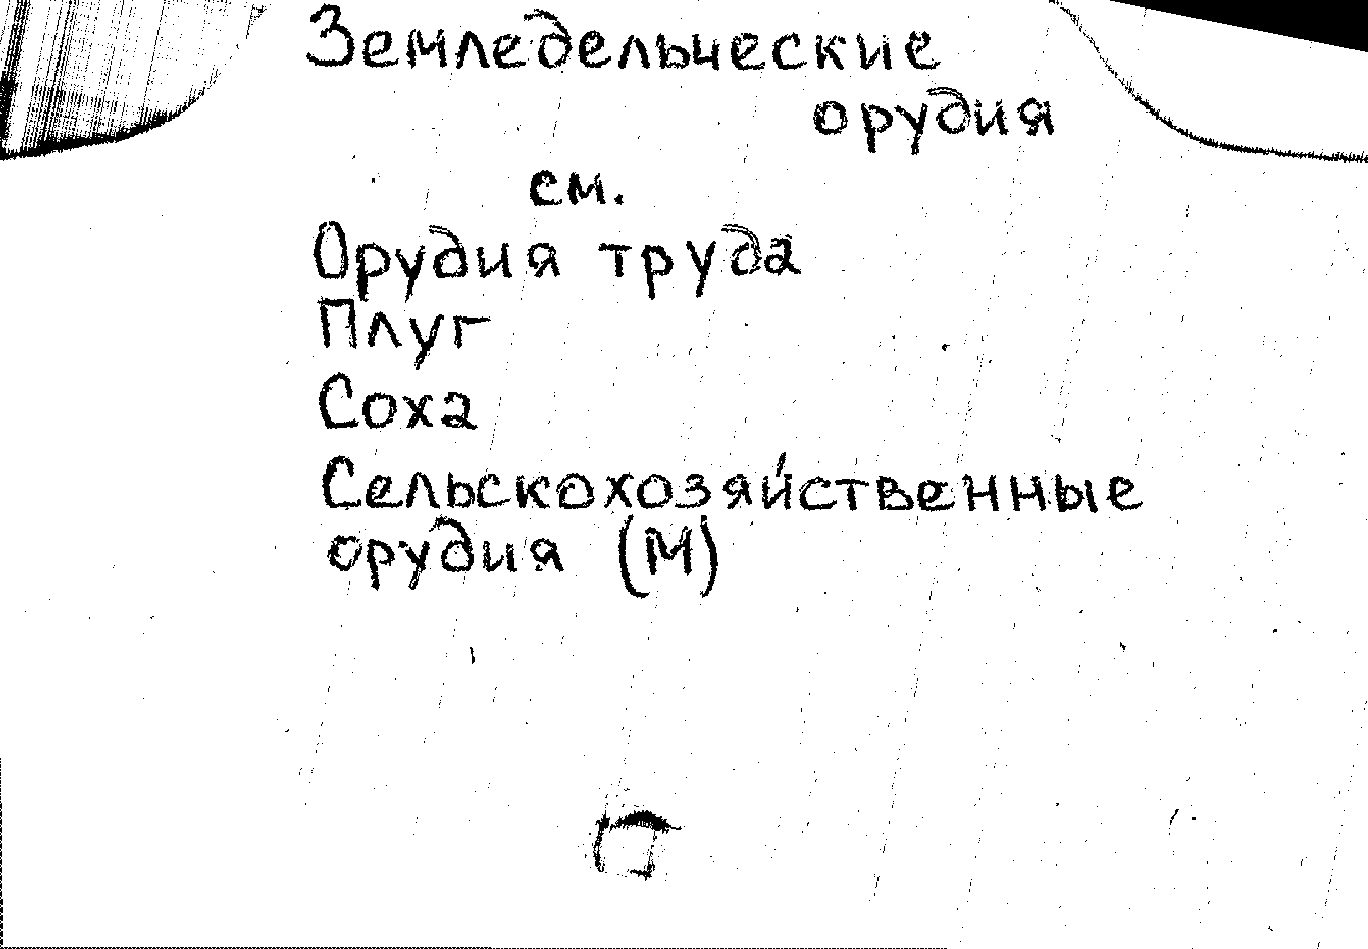 Земледельческие
орудия
см.
Орудия труда
Плуг
Соха
Сельскохозяйственные
орудия (М)